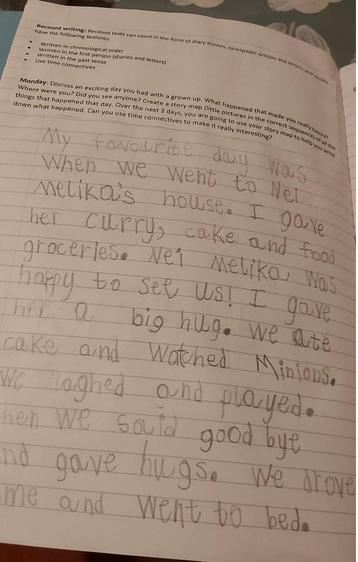 Recount writing: Recount texts can come in the form of diary entries, newspaper articles and letters and usually
have the following features:
Written in chronological order
Written in the first person (diaries and letters)
Written in the past tense
Use time connectives
Monday: Discuss an exciting day you had with a grown up. What happened that made you really happy?
Where were you? Did you see anyone? Create a story map (little pictures in the correct sequence) of all the
things that happened that day. Over the next 3 days, you are going to use your story map to help you write
down what happened. Can you use time connectives to make it really interesting?
My favourite day was
When we went to Nei
Melika's house. I gave
her curry, cake and food
groceries. Nei Melika was
happy to see us! I gave
her a big hug. we ate
cake and watched Minions.
we laghed and played.
hen we said good bye
nd gave hugs. we drove
me and went to bed.